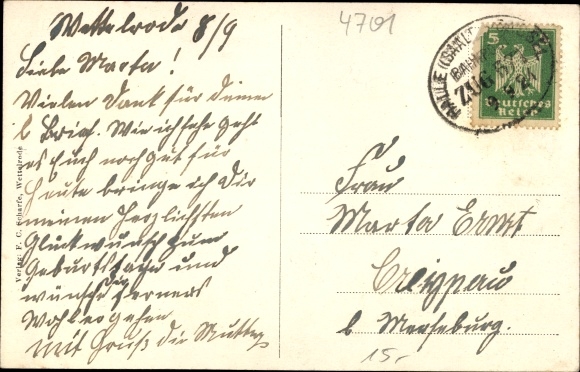 Wettelrode 8/9
Liebe Marta!
Vielen Dank für deinen
l Brief. Wie ich sehe geht
es Euch noch gut für
Heute bringe ich Dir
meinen Herzlichsten
Glückwunsch zum
Geburtstage und
wünsche ferneres
Wohlergehen
mit Gruß die Mutter
Verlag: F. C. Scharfe, Wettelrode
4701
HALLE (SAALE)
BAHN
ZUG
5
Deutsches
Reich
Frau
Marta Ernst
Creypau
b Merseburg.
15.-